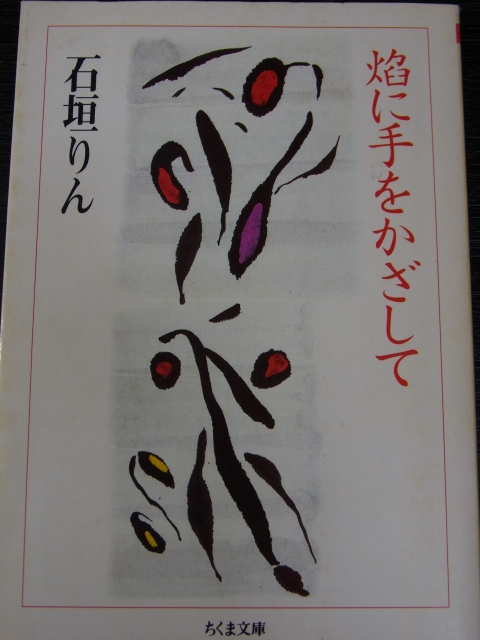 焰に手をかざして
石垣りん
ちくま文庫